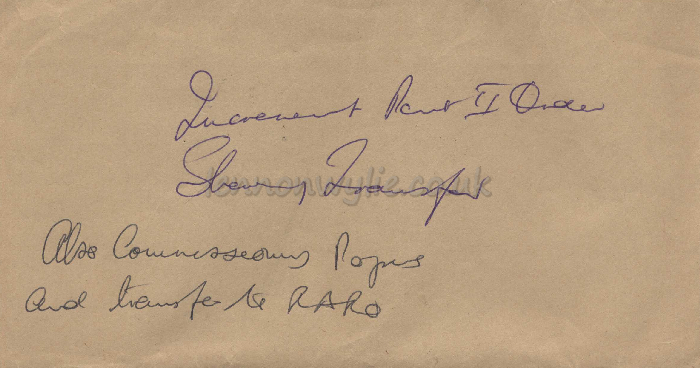 Increment Part II Order
Shares Transfer
lennonwylie.co.uk
Also Commissions Papers
And transfer to RARO